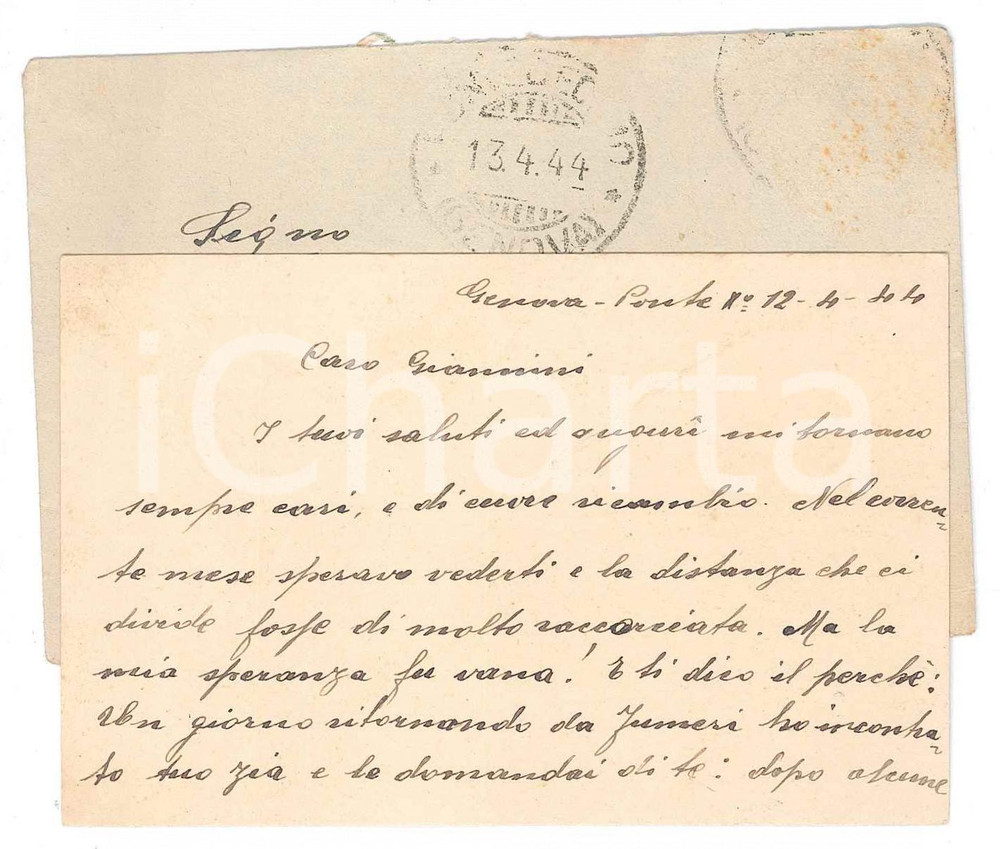 13.4.44
Segno
Genova - Ponte Nº 12-4-44
Caro Giannini
I tuoi saluti ed augurî mi tornano
sempre cari, e di cuore ricambio. Nel corren=
te mese speravo vederti e la distanza che ci
divide fosse di molto raccorciata. Ma la
mia speranza fu vana! E ti dico il perchè:
Un giorno ritornando da Fumeri ho incontra=
to tuo zia e le domandai di te: dopo alcune
iCharta